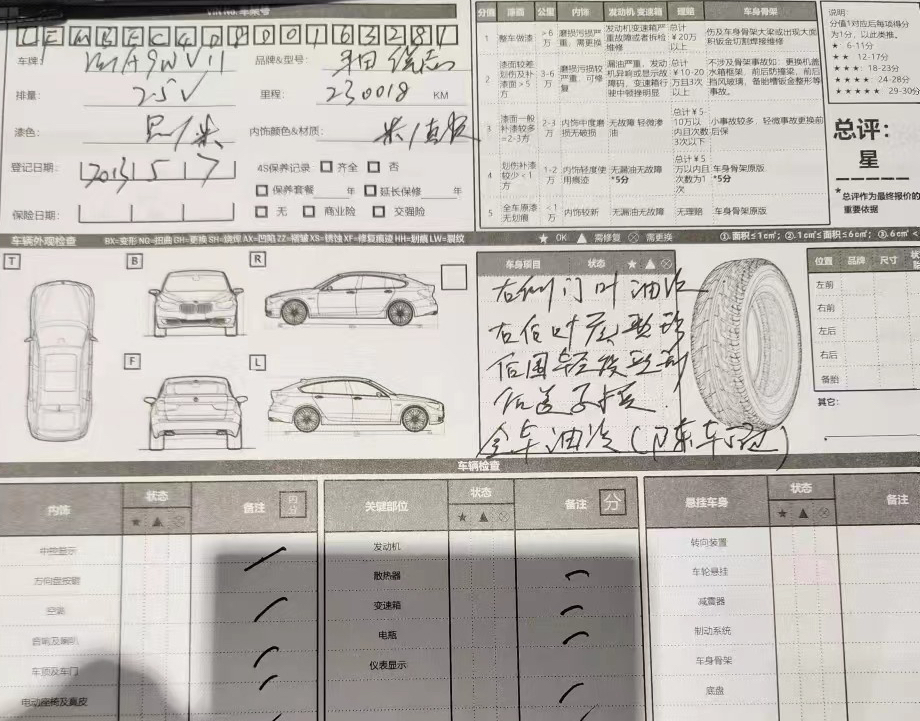 VIN No. 车架号
车牌:
品牌&型号: 丰田 锐志
排量: 2.5V
里程: 230018 KM
漆色: 黑/米
内饰颜色&材质: 米/真皮
登记日期: 2013 5 7
4S保养记录 齐全 否
保养套餐 年 延长保修 年
保险日期:
无 商业险 交强险
分值 漆面 公里 内饰 发动机 变速箱 理赔 车身骨架
1 整车做漆 >6万 磨损污损严重，需更换 发动机变速箱严重故障或者拆检维修 总计￥20万以上 伤及车身骨架大梁或出现大面积钣金切割焊接维修
2 漆面较差 划伤及补漆面>5方 3-6万 磨损污损较严重，可修复 漏油严重、发动机异响或显示故障码，变速箱行驶中顿挫明显 总计￥10-20万且3次以上 不涉及骨架事故如：更换机盖水箱框架，前后防撞梁，前后挡风玻璃，备胎槽钣金整形等事故。
3 漆面一般 补漆较多=2-3方 2-3万 内饰中度磨损无破损 无故障 轻微渗油 总计￥5-10万以内且次数3次以下 小事故较多，轻微事故更换前后保
4 划伤补漆较少<1方 1-2万 内饰轻度使用痕迹 无漏油无故障 *5分 总计￥5万以内且次数为1次 车身骨架原版 *5分
5 全车原漆无划痕 <1万 内饰较新 无漏油无故障 无理赔 车身骨架原版
说明:
分值1对应后每项得分为1分，以此类推。
★: 6-11分
★★: 12-17分
★★★: 18-23分
★★★★: 24-28分
★★★★★: 29-30分
总评:
星
★总评作为最终报价的重要依据
车辆外观检查 BX=变形 NG=扭曲 GH=更换 SH=烧焊 AX=凹陷 ZZ=褶皱 XS=锈蚀 XF=修复痕迹 HH=划痕 LW=裂纹 ★ OK ▲ 需修复 ⊗ 需更换 ①.面积≤1㎝²; ②.1㎝²≤面积≤6㎝²; ③.6㎝²<
T B R
F L
车身项目 状态 ★ ▲ ⊗
全车油漆
位置 品牌 尺寸
左前
右前
左后
右后
备胎
其它:
车辆检查
内饰 状态 备注 内分
★ ▲ ⊗
中控显示
方向盘按键
空调
音响及喇叭
车顶及车门
电动座椅及真皮
关键部位 状态 备注 分
★ ▲ ⊗
发动机
散热器
变速箱
电瓶
仪表显示
悬挂车身 状态 备注
★ ▲ ⊗
转向装置
车轮悬挂
减震器
制动系统
车身骨架
底盘